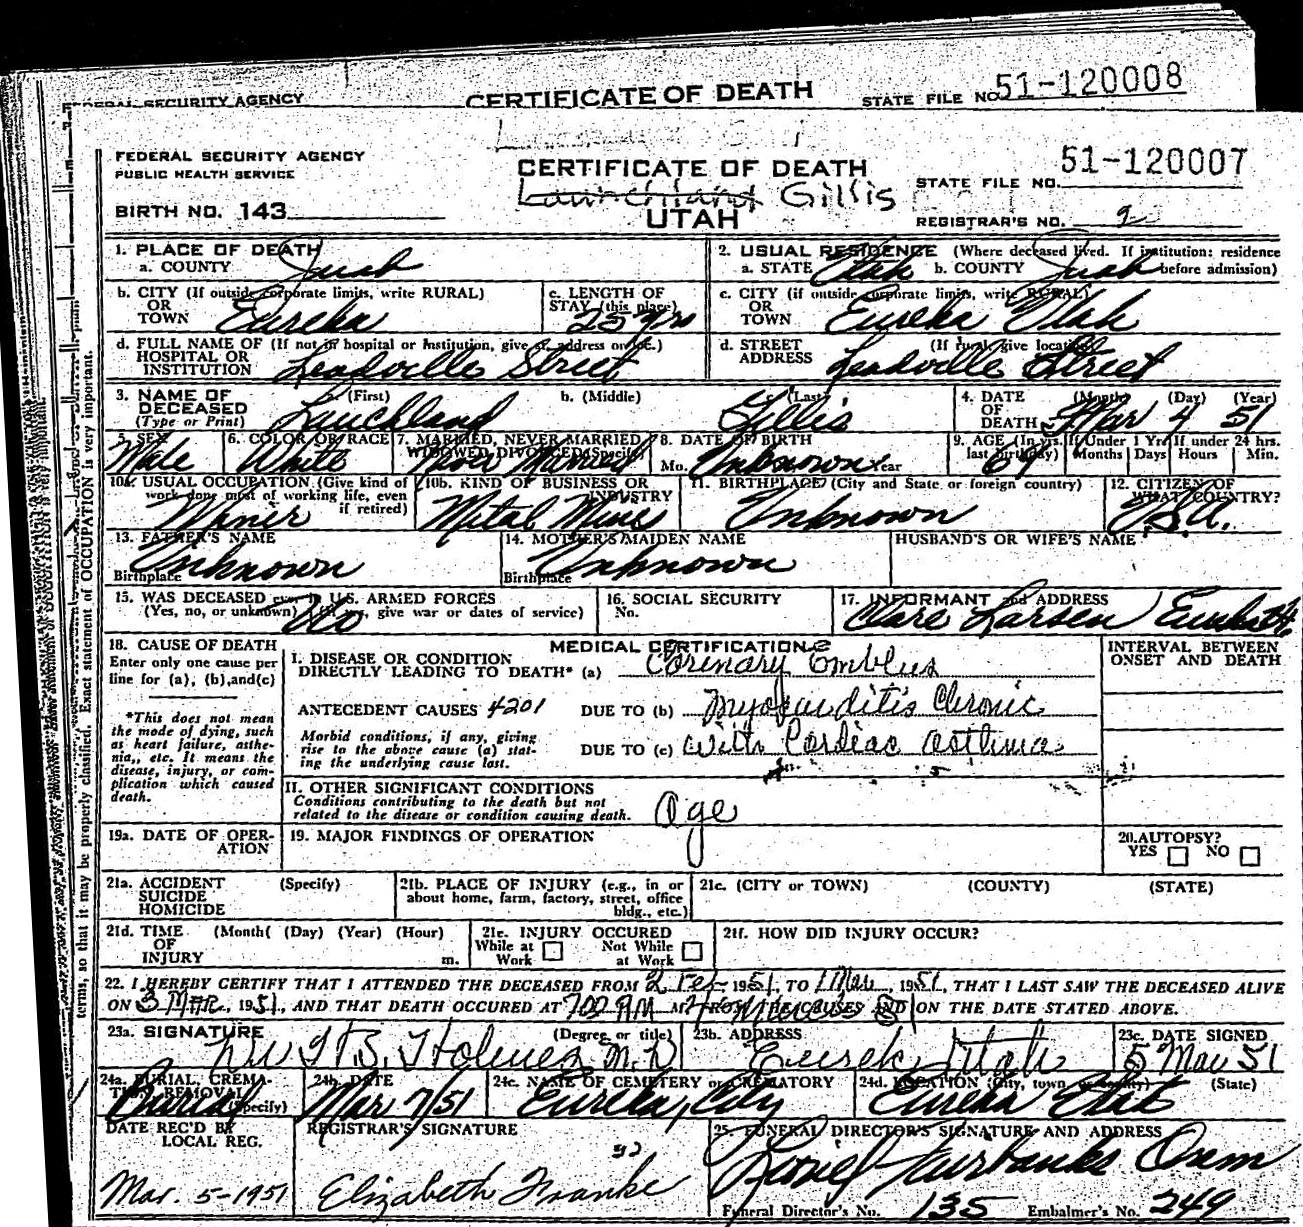 FEDERAL SECURITY AGENCY
CERTIFICATE OF DEATH
STATE FILE NO. 51-120008
FEDERAL SECURITY AGENCY
PUBLIC HEALTH SERVICE
CERTIFICATE OF DEATH
STATE FILE NO. 51-120007
BIRTH NO. 143
Gillis
UTAH
REGISTRAR'S NO. 9
1. PLACE OF DEATH
a. COUNTY Juab
2. USUAL RESIDENCE (Where deceased lived. If institution: residence before admission)
a. STATE Utah b. COUNTY Juab
b. CITY (If outside corporate limits, write RURAL) OR TOWN Eureka
c. LENGTH OF STAY (this place) 25 yrs
c. CITY (if outside corporate limits, write RURAL) OR TOWN Eureka Utah
d. FULL NAME OF (If not in hospital or institution, give st. address or loc.) HOSPITAL OR INSTITUTION Leadville Street
d. STREET ADDRESS (If rural, give location) Leadville Street
3. NAME OF DECEASED (Type or Print)
a. (First) Lauchland
b. (Middle)
c. (Last) Gillis
4. DATE OF DEATH (Month) (Day) (Year) Mar 4 51
5. SEX Male
6. COLOR OR RACE White
7. MARRIED, NEVER MARRIED WIDOWED, DIVORCED (Specify) Never Married
8. DATE OF BIRTH Mo. Unknown Year
9. AGE (In yrs. last birthday) 69
If Under 1 Yr. Months Days
If under 24 hrs. Hours Min.
10a. USUAL OCCUPATION (Give kind of work done most of working life, even if retired) Miner
10b. KIND OF BUSINESS OR INDUSTRY Metal Mine
11. BIRTHPLACE (City and State or foreign country) Unknown
12. CITIZEN OF WHAT COUNTRY? USA.
13. FATHER'S NAME Unknown
Birthplace
14. MOTHER'S MAIDEN NAME Unknown
Birthplace
HUSBAND'S OR WIFE'S NAME
15. WAS DECEASED ever in U.S. ARMED FORCES (Yes, no, or unknown) (If yes, give war or dates of service) No
16. SOCIAL SECURITY No.
17. INFORMANT and ADDRESS Clare Larsen
18. CAUSE OF DEATH
Enter only one cause per line for (a), (b), and (c)
*This does not mean the mode of dying, such as heart failure, asthenia,, etc. It means the disease, injury, or complication which caused death.
MEDICAL CERTIFICATION
I. DISEASE OR CONDITION DIRECTLY LEADING TO DEATH* (a) Corinary Emblus
ANTECEDENT CAUSES 4201 DUE TO (b) Myocarditis Chronic
Morbid conditions, if any, giving rise to the above cause (a) stating the underlying cause last.
DUE TO (c) with Cardiac asthma
INTERVAL BETWEEN ONSET AND DEATH
II. OTHER SIGNIFICANT CONDITIONS
Conditions contributing to the death but not related to the disease or condition causing death. Age
19a. DATE OF OPERATION
19. MAJOR FINDINGS OF OPERATION
20. AUTOPSY? YES NO
21a. ACCIDENT SUICIDE HOMICIDE (Specify)
21b. PLACE OF INJURY (e.g., in or about home, farm, factory, street, office bldg., etc.)
21c. (CITY or TOWN) (COUNTY) (STATE)
21d. TIME OF INJURY (Month( (Day) (Year) (Hour) m.
21e. INJURY OCCURED While at Work Not While at Work
21f. HOW DID INJURY OCCUR?
22. I HEREBY CERTIFY THAT I ATTENDED THE DECEASED FROM 2 Feb 1951, TO 1 Mar, 1951, THAT I LAST SAW THE DECEASED ALIVE
ON 3 Mar, 1951, AND THAT DEATH OCCURED AT 700 AM ON THE DATE STATED ABOVE.
23a. SIGNATURE (Degree or title) Holmes M.D
23b. ADDRESS Eureka Utah
23c. DATE SIGNED 5 Mar 51
24a. BURIAL, CREMATION, REMOVAL (Specify) Burial
24b. DATE Mar 7/51
24c. NAME OF CEMETERY or CREMATORY Eureka City
24d. LOCATION (City, town, or county) (State) Eureka Utah
DATE REC'D BY LOCAL REG. Mar. 5-1951
REGISTRAR'S SIGNATURE Elizabeth Franke
25. FUNERAL DIRECTOR'S SIGNATURE AND ADDRESS Fairbanks Orem
Funeral Director's No. 135 Embalmer's No. 249
terms, so that it may be properly classified. Exact statement of OCCUPATION is very important.